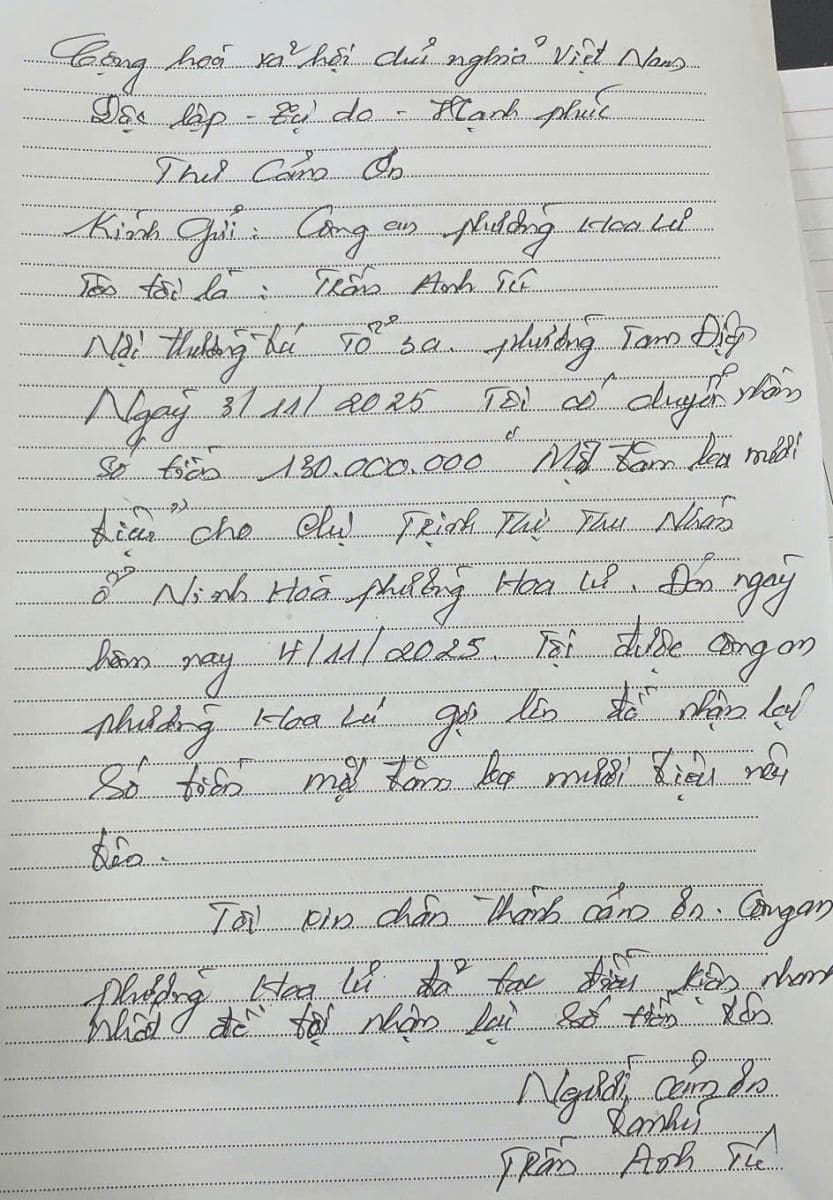 Cộng hoá xã hội chủ nghĩa Việt Nam
Độc lập - Tự do - Hạnh phúc
Thư Cảm Ơn
Kính gửi: Công an phường Hoa Lư
Tên tôi là: Trần Anh Tú
Nơi thường trú Tổ 3a. phường Tam Điệp
Ngày 3/11/2025 Tôi có chuyển nhầm
Số tiền 130.000.000đ Một trăm ba mươi
triệu cho chị Trịnh Thị Thu Nhàn
ở Ninh Hoà phường Hoa Lư. Đến ngày
hôm nay 4/11/2025. Tôi được công an
phường Hoa Lư gọi lên để nhận lại
Số tiền một trăm ba mươi triệu nêu
trên.
Tôi xin chân thành cảm ơn. Công an
phường Hoa Lư đã tạo điều kiện nhanh
nhất để tôi nhận lại số tiền trên
Người cảm ơn
Trần Anh Tú